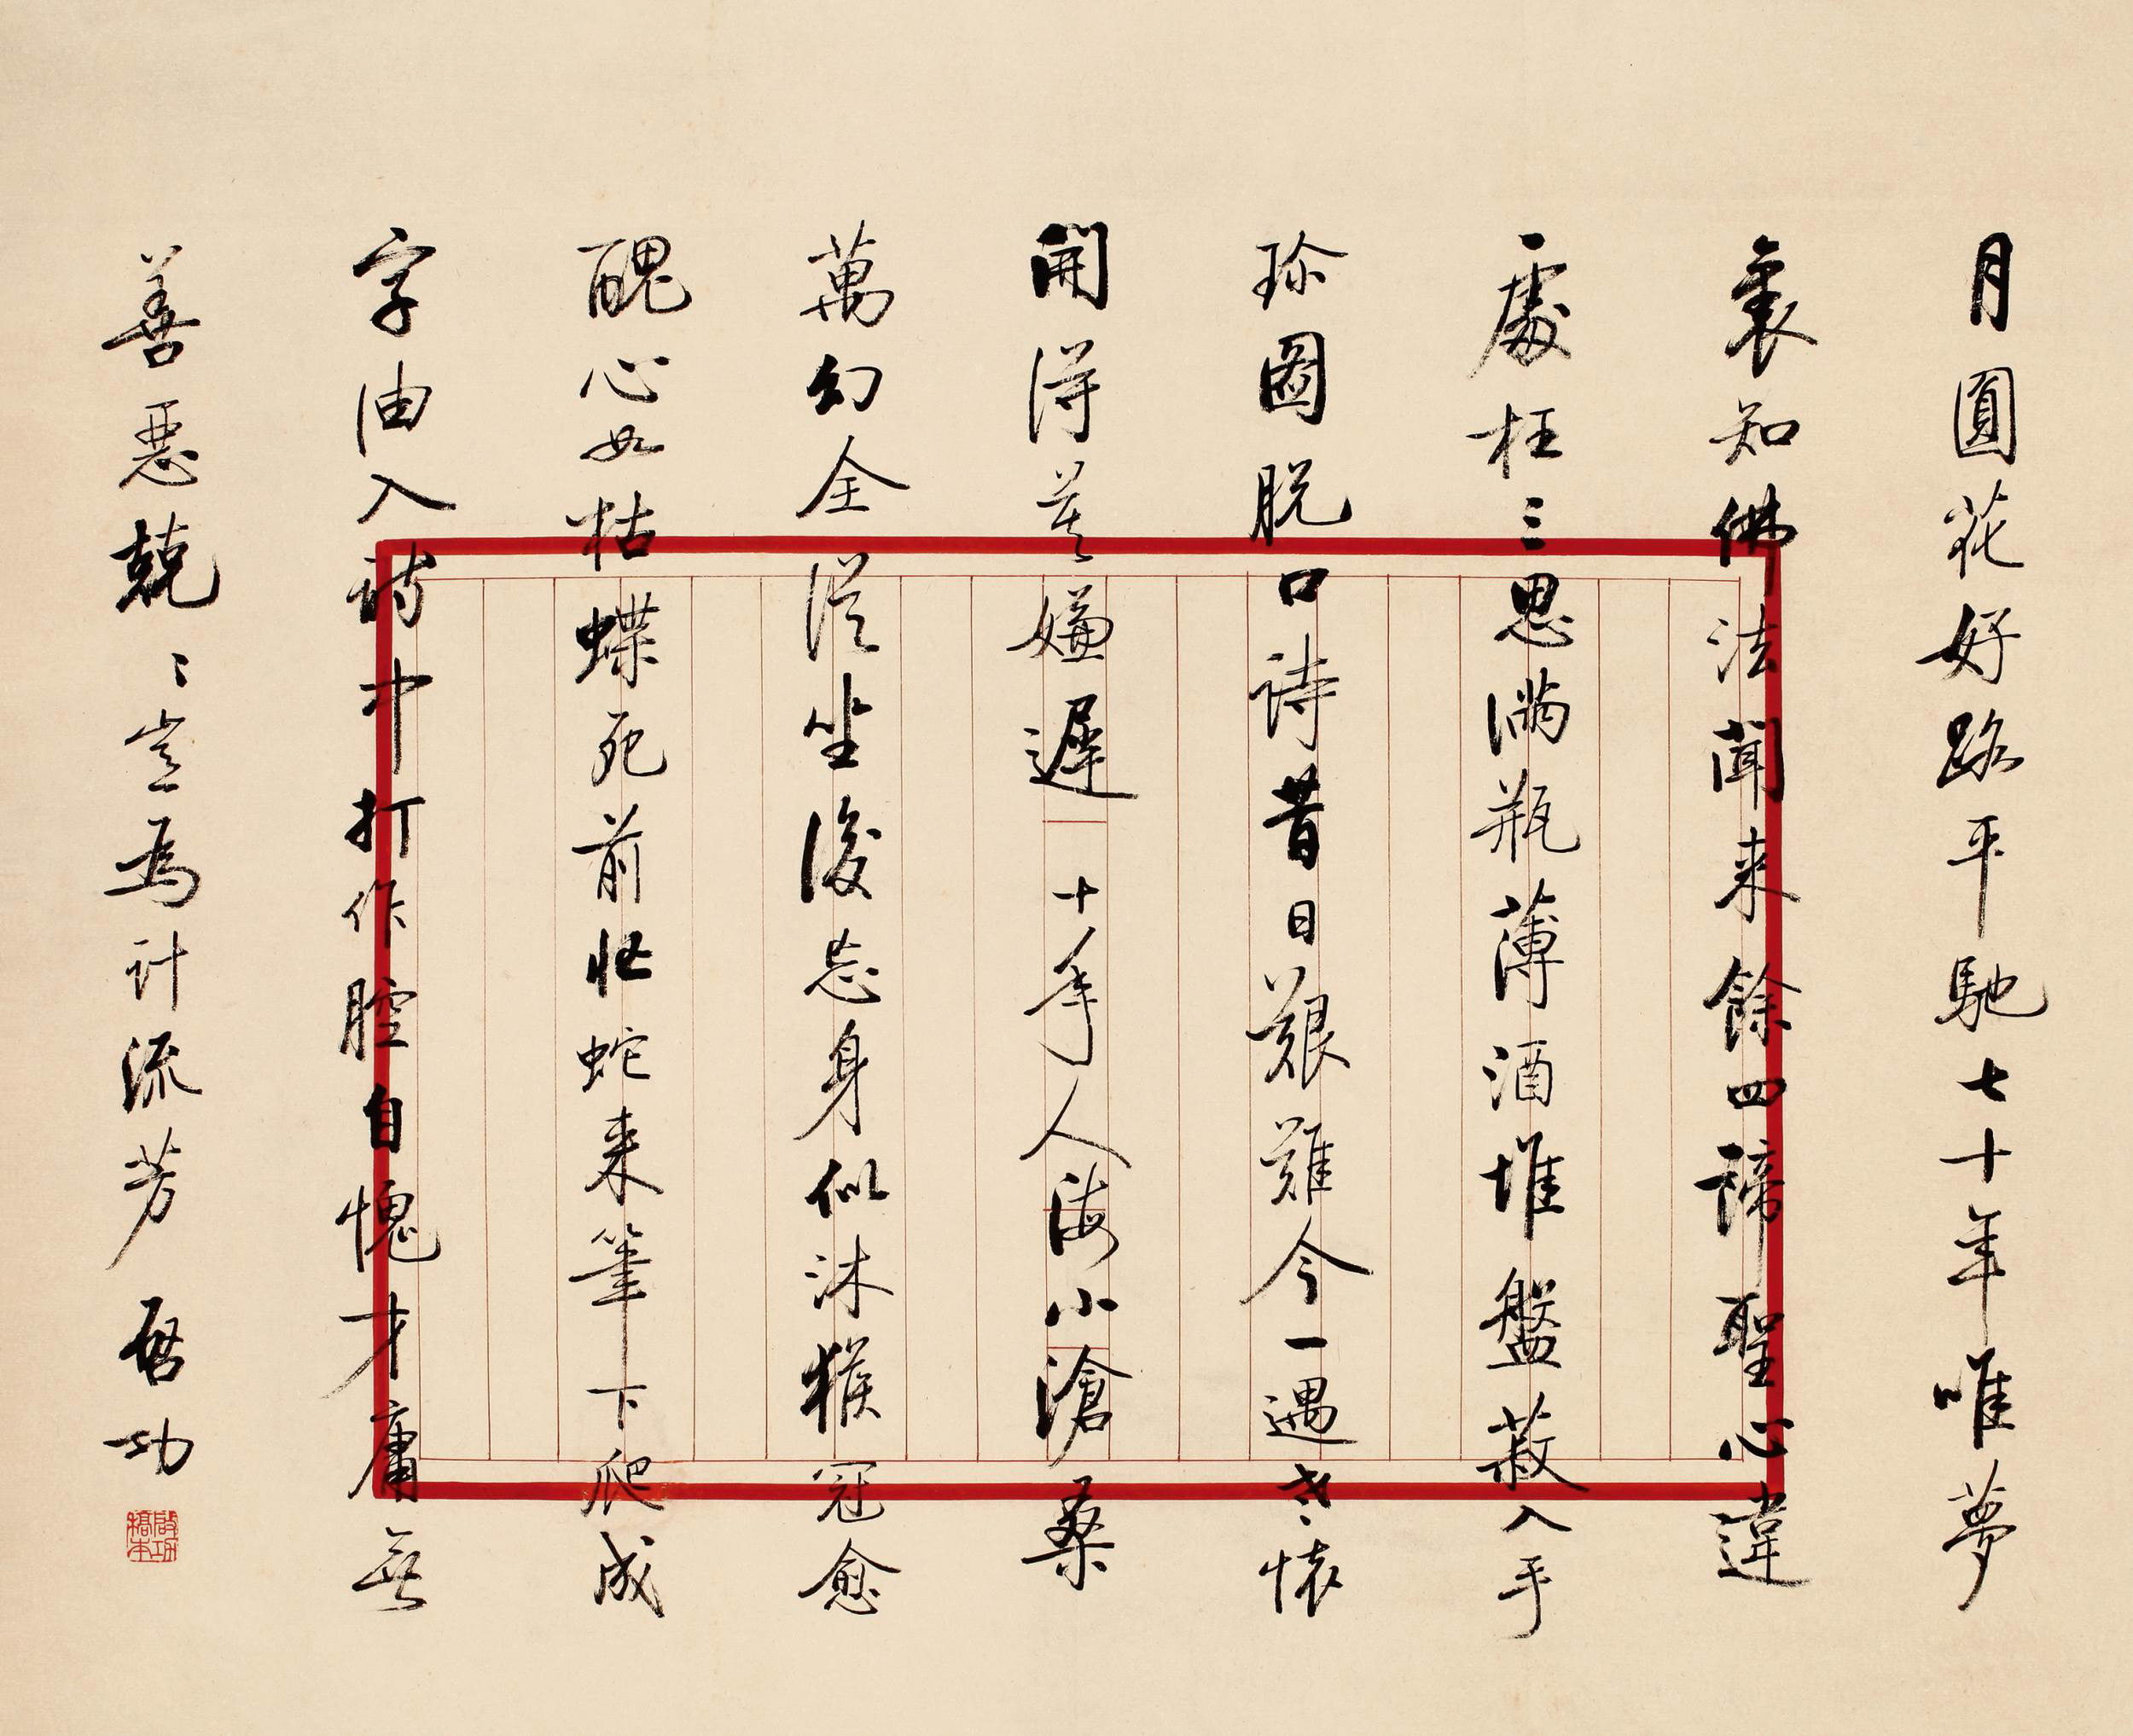 月圓花好路平馳七十年唯夢
裏知佛法聞来餘四諦聖心違
一處枉三思滿瓶薄酒堆盤菽入手
珍圖脫口詩昔日艱難今一遇老懷
開得莫嫌遲 十年人海小滄桑
萬幻全從坐後忘身似沐猴冠愈
醜心如枯蝶死前忙蛇来筆下爬成
字油入詩中打作腔自愧才庸無
善惡兢〻豈為計流芳 启功
啟功